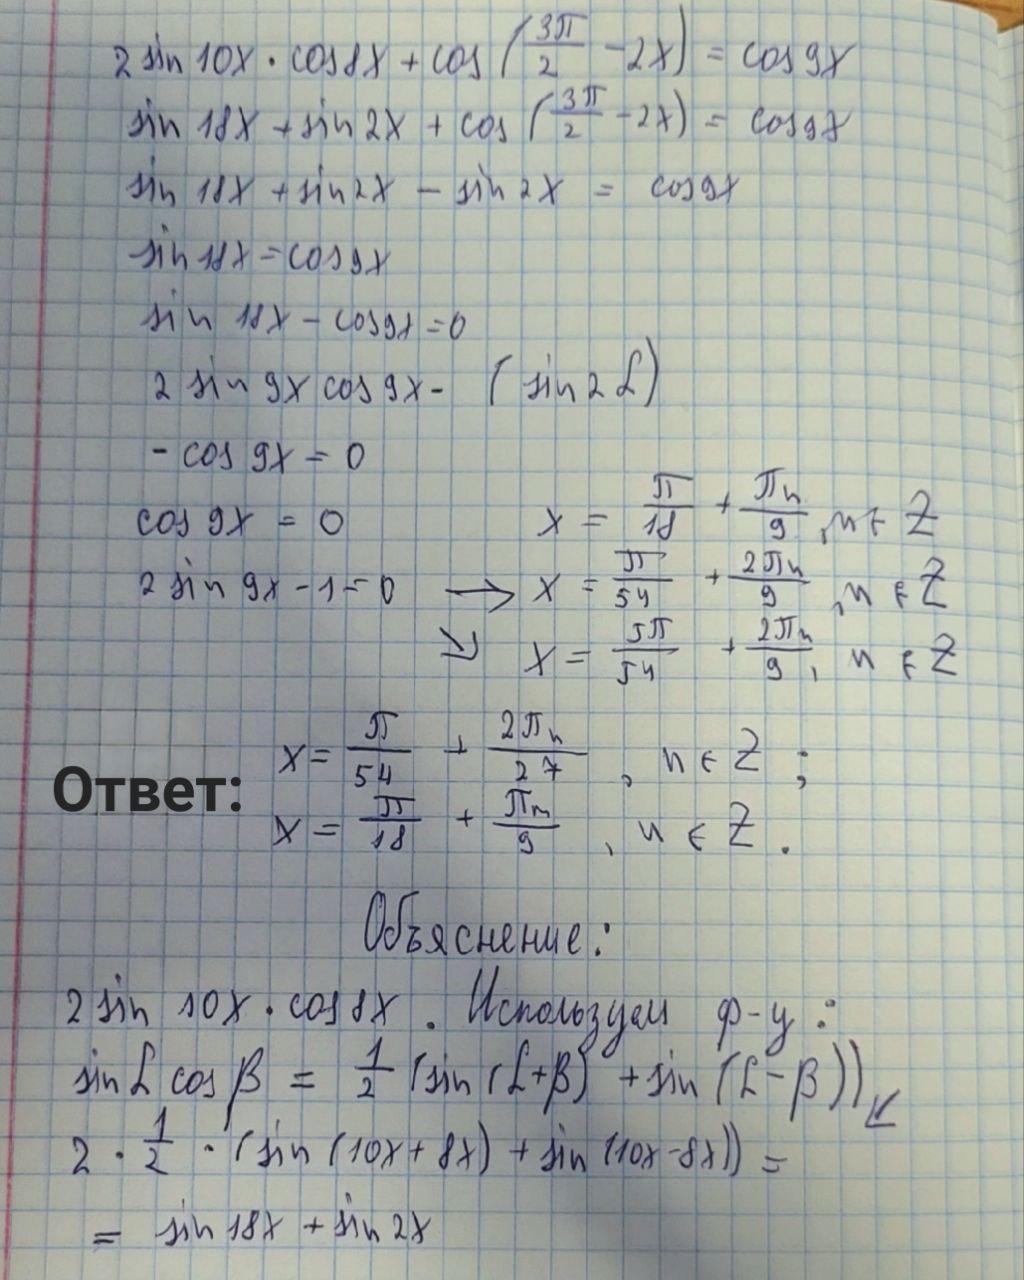 2 sin 10x · cos 8x + cos (3π/2 - 2x) = cos 9x
sin 18x + sin 2x + cos (3π/2 - 2x) = cos 9x
sin 18x + sin 2x - sin 2x = cos 9x
sin 18x = cos 9x
sin 18x - cos 9x = 0
2 sin 9x cos 9x - (sin 2L)
- cos 9x = 0
cos 9x = 0 x = π/18 + πn/9, n ∈ Z
2 sin 9x - 1 = 0 → x = π/54 + 2πn/9, n ∈ Z
↘ x = 5π/54 + 2πn/9, n ∈ Z
Ответ: x = π/54 + 2πn/27, n ∈ Z;
x = π/18 + πn/9, n ∈ Z.
Объяснение:
2 sin 10x · cos 8x. Используем ф-у:
sin L cos β = 1/2 (sin (L+β) + sin (L-β)) ↙
2 · 1/2 · (sin (10x + 8x) + sin (10x - 8x)) =
= sin 18x + sin 2x